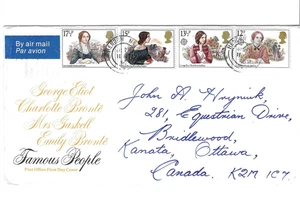 By air mail
Par avion
17½p
15p
13½p
12p
George Eliot
Charlotte Brontë
Mrs Gaskell
Emily Brontë
Famous People
Post Office First Day Cover
John A Hrynuik
281, Equestrian Drive,
Bridlewood,
Kanata, Ottawa,
Canada. K2M 1C7.